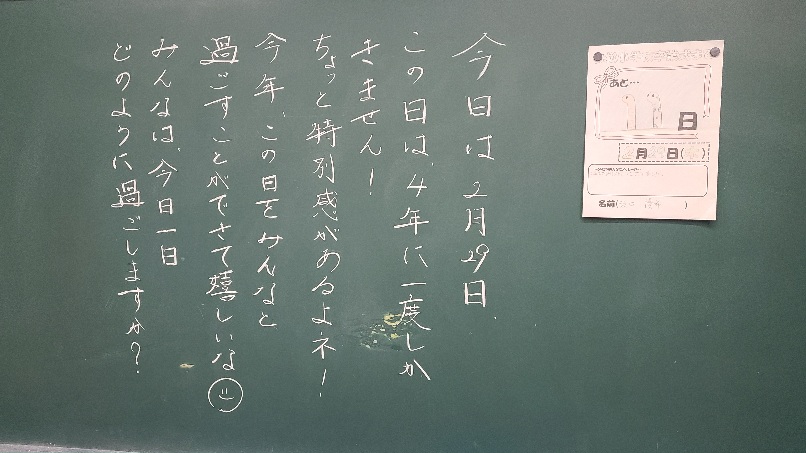 今日は2月29日.
この日は、4年に一度しか
きません!
ちょっと特別感があるよネ!
今年、この日をみんなと
過ごすことができて嬉しいな
みんなは、今日一日
どのように過ごしますか?
あと…
日
月 日( )
名前( )